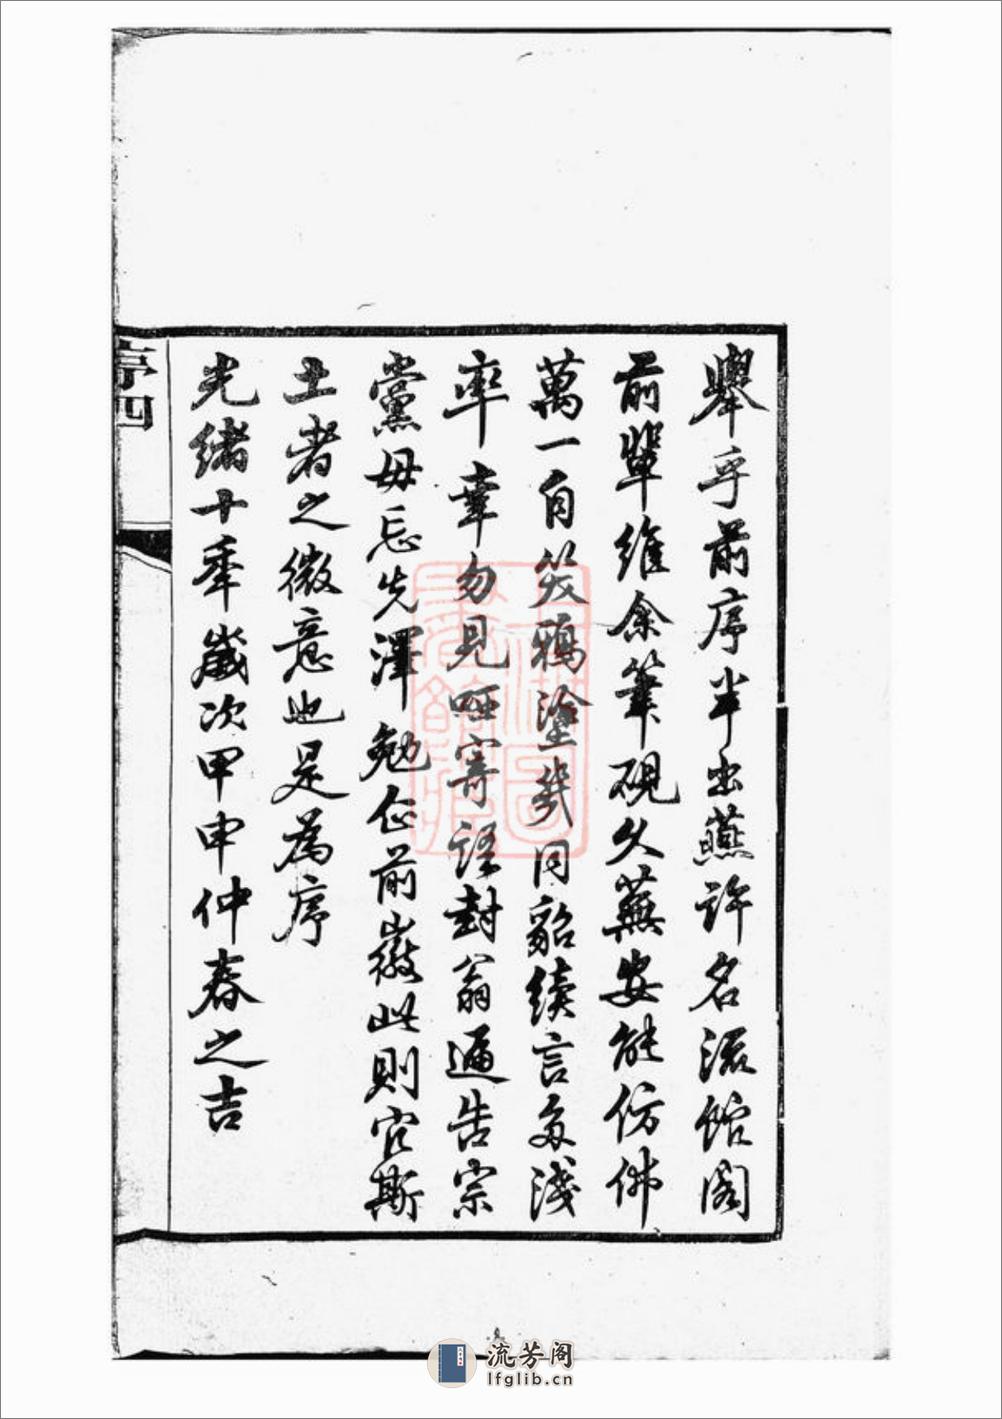 舉乎前序半出燕許名流館閣
前輩維余筆硯久蕪安能仿佛
萬一自笑鴉塗幾同貂續言多淺
率幸勿見哂寄語封翁遍告宗
黨毋忘先澤勉企前徽此則官斯
土者之微意也是為序
光緒十年歲次甲申仲春之吉
序四
流芳阁
lfglib.cn